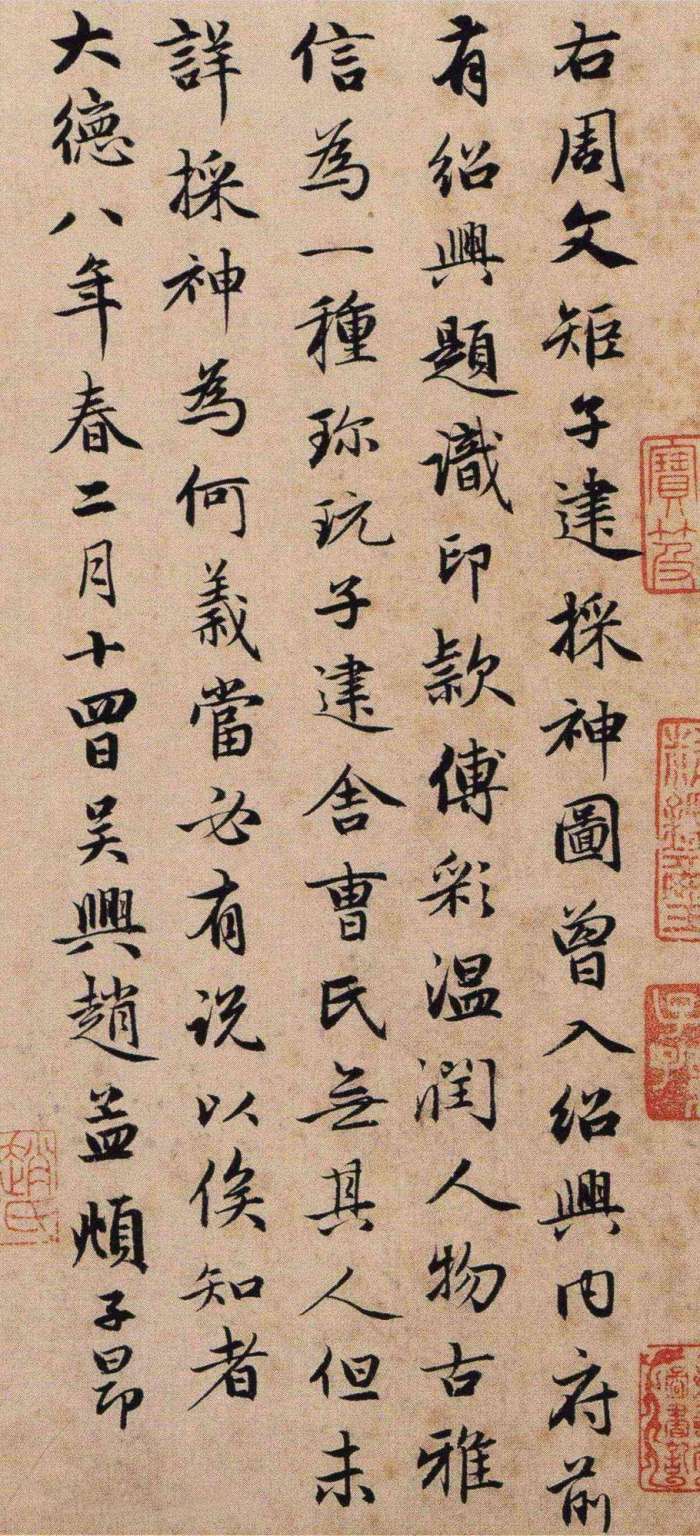 右周文矩子建採神圖曾入紹興内府前
有紹興題識印款傅彩温潤人物古雅
信為一種珎玩子建舍曹氏無其人但未
詳採神為何義當必有説以俟知者
大德八年春二月十四日吴興趙孟頫子昂
趙氏